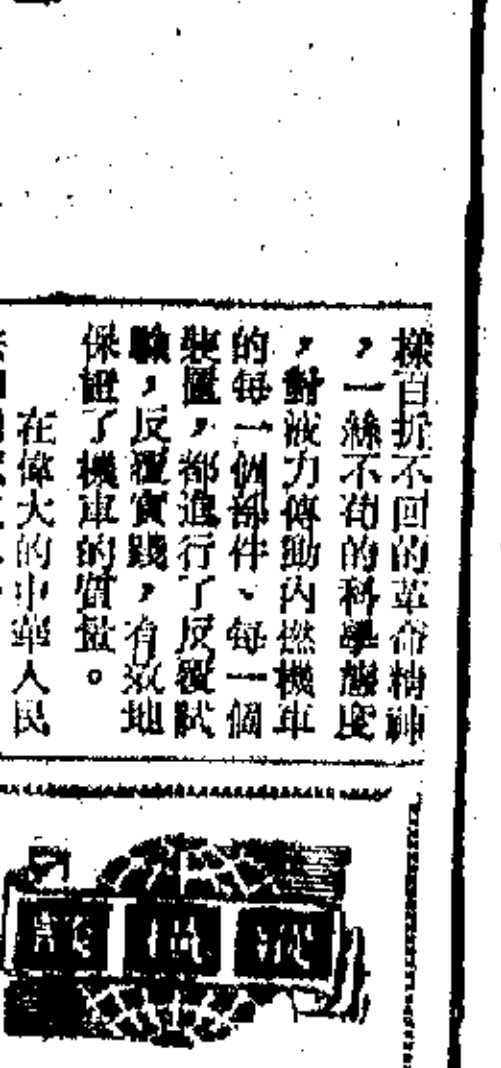 樣百折不回的革命精神
，一絲不苟的科學態度
，對液力傳動內燃機車
的每一個部件、每一個
裝置，都進行了反覆試
驗，反覆實踐，有效地
保證了機車的質量。
在偉大的中華人民